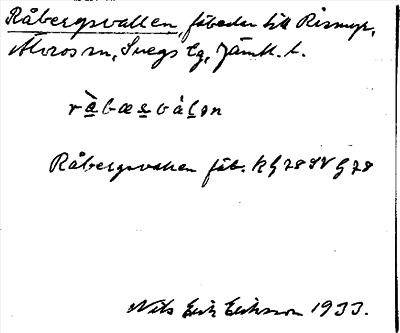 Råbergsvallen, fäbodar till Remmen,
Älvros sn, Svegs tg, Jämtl. l.
ràbæsvàlən
Råbergsvallen fäb. Kg 78 SV G 78
Nils Erik Eriksson 1933.